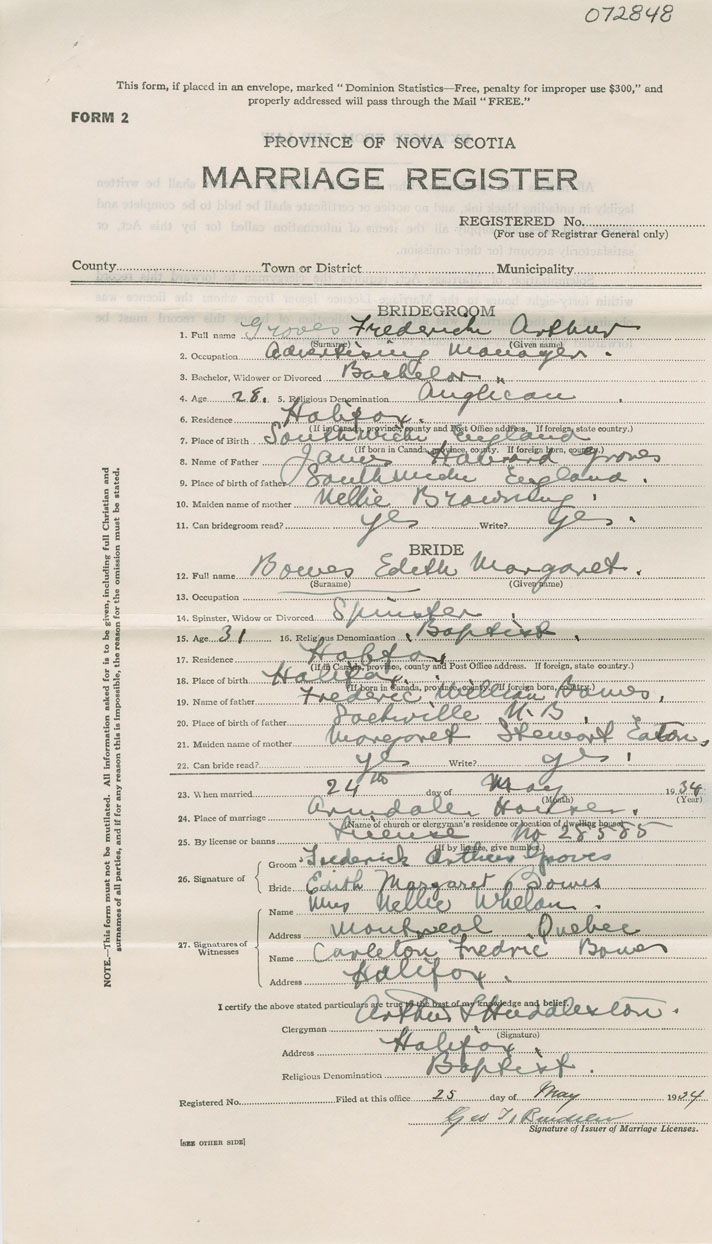 072848
This form, if placed in an envelope, marked "Dominion Statistics—Free, penalty for improper use $300," and
properly addressed will pass through the Mail "FREE."
FORM 2
PROVINCE OF NOVA SCOTIA
MARRIAGE REGISTER
REGISTERED No.
(For use of Registrar General only)
County Town or District Municipality
BRIDEGROOM
1. Full name Groves Frederick Arthur
(Surname) (Given name)
2. Occupation Advertising Manager.
3. Bachelor, Widower or Divorced Bachelor
4. Age 28. 5. Religious Denomination Anglican
6. Residence Halifax.
(If in Canada, province, county and Post Office address. If foreign, state country.)
7. Place of Birth Southwick England
(If born in Canada, province, county. If foreign born, country.)
8. Name of Father James Groves
9. Place of birth of father Southwick England.
10. Maiden name of mother Nellie Browning
11. Can bridegroom read? yes Write? yes.
BRIDE
12. Full name Bowes Edith Margaret.
(Surname) (Given name)
13. Occupation
14. Spinster, Widow or Divorced Spinster
15. Age 31 16. Religious Denomination Baptist
17. Residence Halifax
(If in Canada, province, county and Post Office address. If foreign, state country.)
18. Place of birth Halifax.
(If born in Canada, province, county. If foreign born, country.)
19. Name of father Frederic William Bowes,
20. Place of birth of father Sackville N.B.
21. Maiden name of mother Margaret Stewart Eaton,
22. Can bride read? yes Write? yes
23. When married 24th day of May 1934
(Month) (Year)
24. Place of marriage Armdale, Halifax.
(Name of church or clergyman's residence or location of dwelling house)
25. By license or banns License No 28585
(If by license, give number.)
26. Signature of Groom Frederick Arthur Groves
Bride Edith Margaret Bowes
27. Signatures of Witnesses
Name Mrs Nellie Whelan.
Address Montreal Quebec
Name Carleton Fredric Bowes
Address Halifax.
I certify the above stated particulars are true to the best of my knowledge and belief.
Clergyman Arthur S Huddleston.
(Signature)
Address Halifax.
Religious Denomination Baptist.
Registered No. Filed at this office 25 day of May 1934
Geo
Signature of Issuer of Marriage Licenses.
[SEE OTHER SIDE]
NOTE.—This form must not be mutilated. All information asked for is to be given, including full Christian and
surnames of all parties, and if for any reason this is impossible, the reason for the omission must be stated.